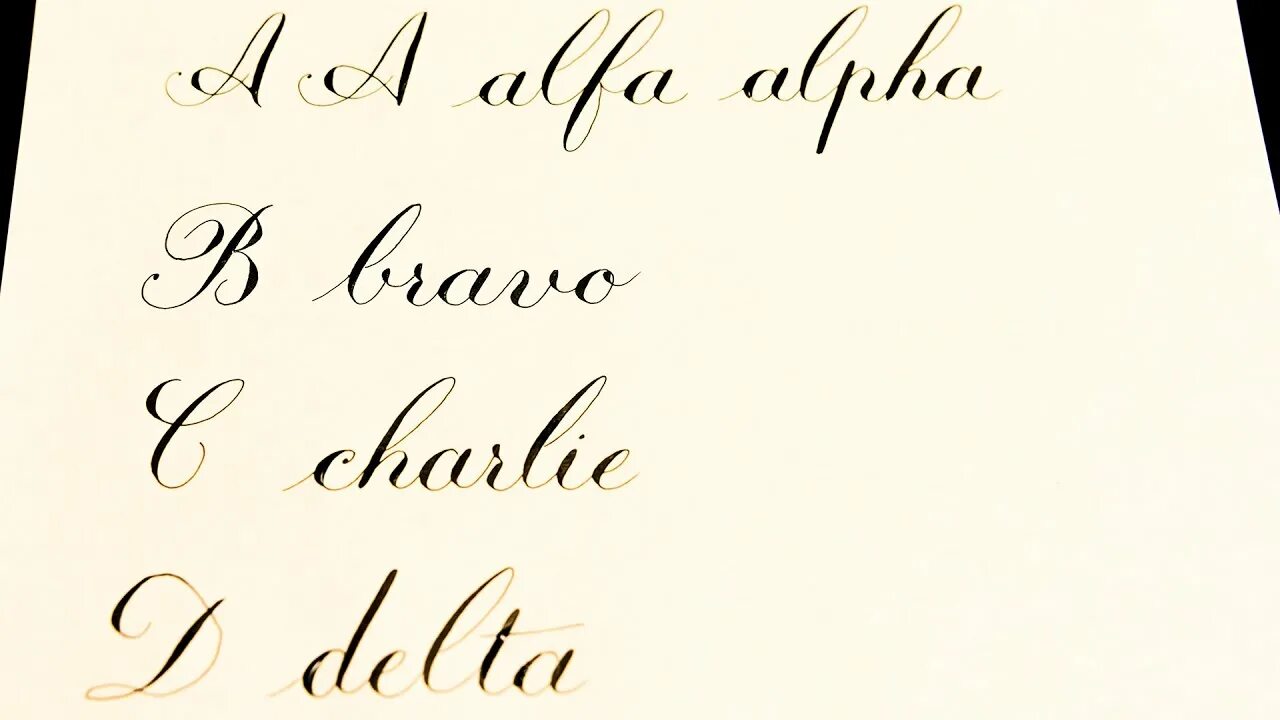 A A alfa alpha
B bravo
C charlie
D delta